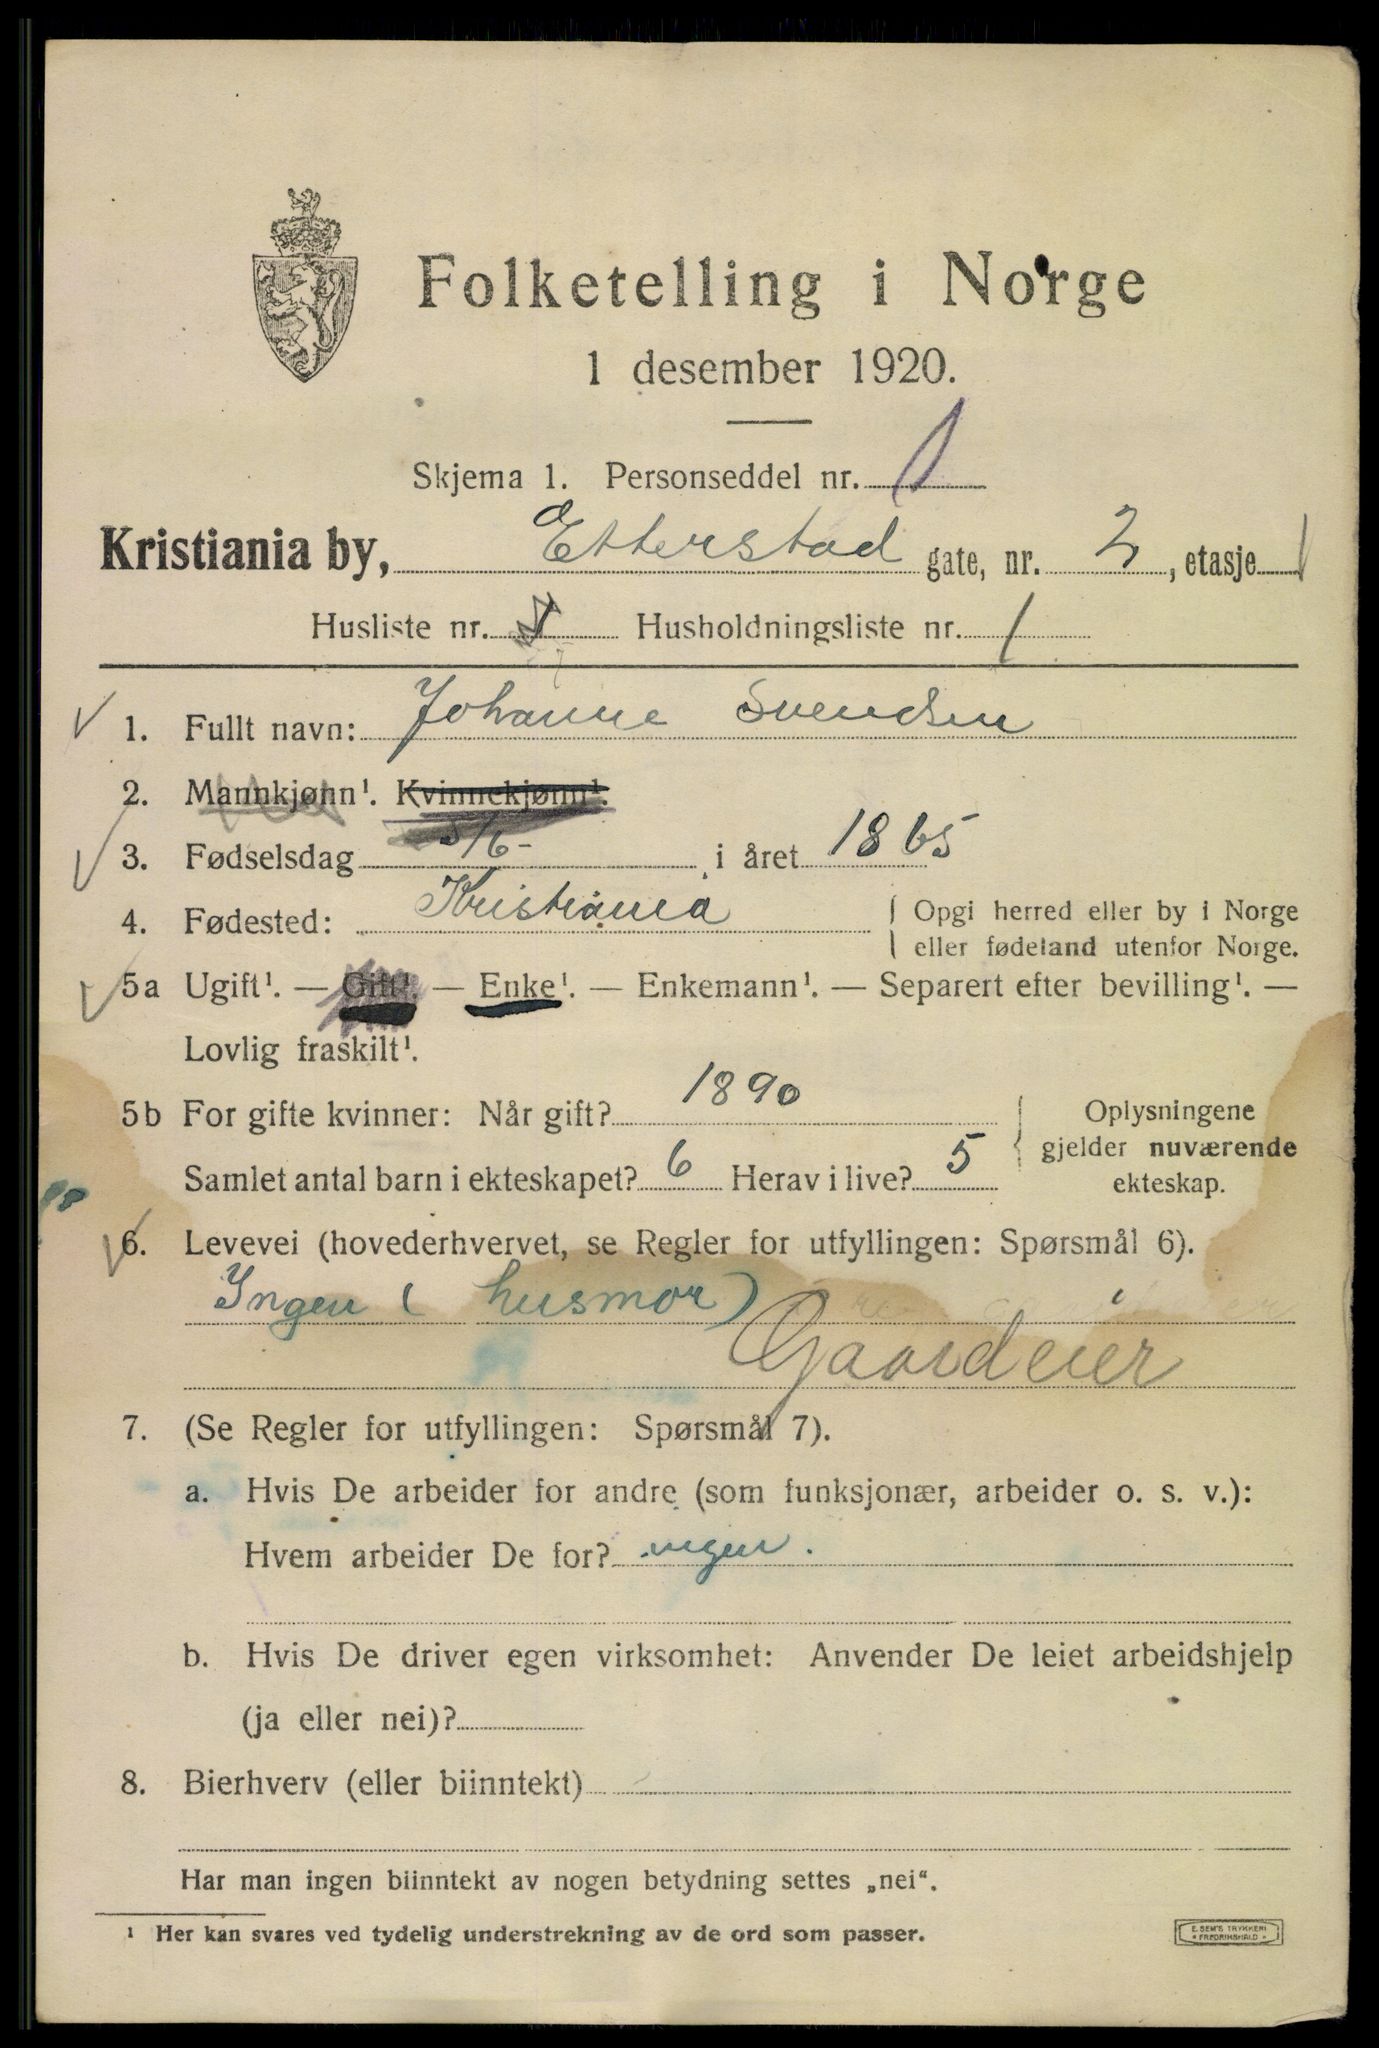 Folketelling i Norge
1 desember 1920.
Skjema 1. Personseddel nr. 1
Kristiania by, Etterstad gate, nr. 2, etasje 1
Husliste nr. 1 Husholdningsliste nr. 1
1. Fullt navn: Johanne Svendsen
2. Mannkjønn¹. Kvinnekjønn¹.
3. Fødselsdag 5/6- i året 1865
4. Fødested: Kristiania Opgi herred eller by i Norge
eller fødeland utenfor Norge.
5a Ugift¹. — Gift¹. — Enke¹. — Enkemann¹. — Separert efter bevilling¹. —
Lovlig fraskilt¹.
5b For gifte kvinner: Når gift? 1890 Oplysningene
gjelder nuværende
Samlet antal barn i ekteskapet? 6 Herav i live? 5 ekteskap.
6. Levevei (hovederhvervet, se Regler for utfyllingen: Spørsmål 6).
Yngen (husmor)
Gaardeier
7. (Se Regler for utfyllingen: Spørsmål 7).
a. Hvis De arbeider for andre (som funksjonær, arbeider o. s. v.):
Hvem arbeider De for? ingen.
b. Hvis De driver egen virksomhet: Anvender De leiet arbeidshjelp
(ja eller nei)?
8. Bierhverv (eller biinntekt)
Har man ingen biinntekt av nogen betydning settes „nei“.
¹ Her kan svares ved tydelig understrekning av de ord som passer.
E. SEM'S TRYKKERI
FREDRIKSHALD